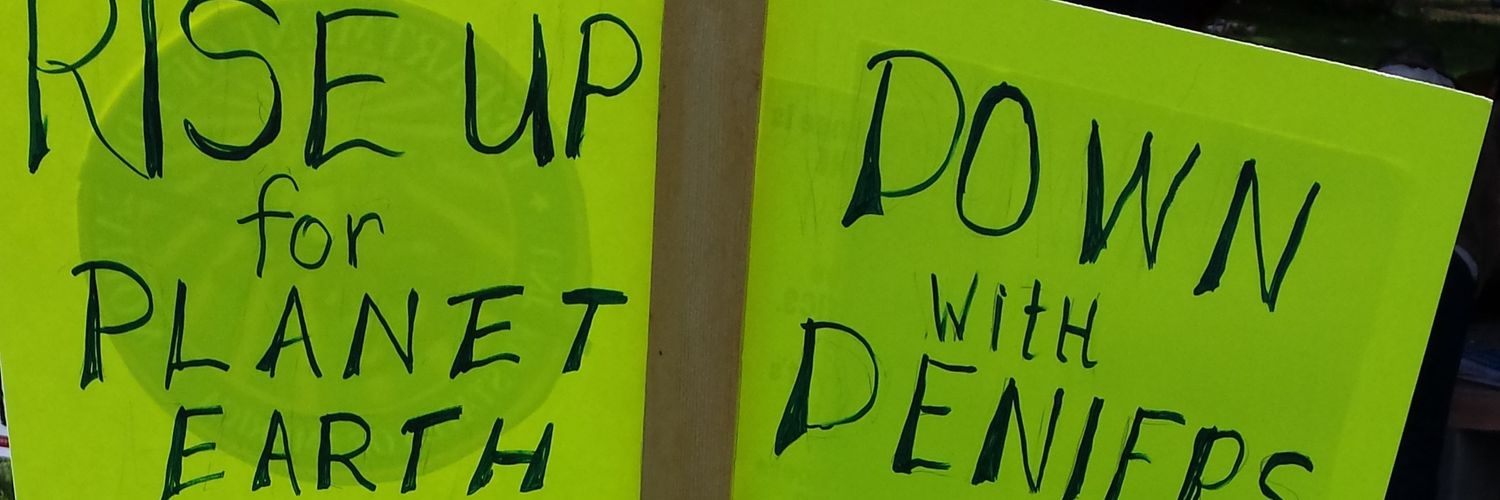 RISE UP
for
PLANET
EARTH
DOWN
WitH
DENIERS